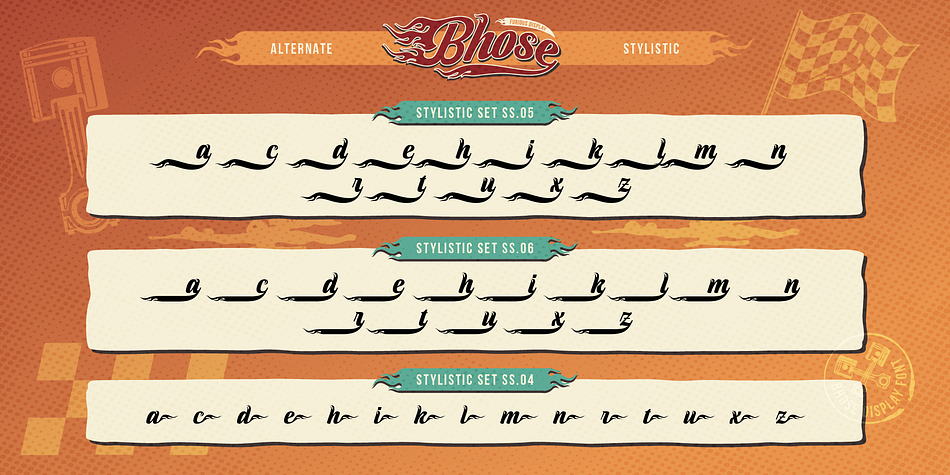 ALTERNATE
FURIOUS DISPLAY
Bhose
STYLISTIC
STYLISTIC SET SS.05
a c d e h i k l m n
r t u x z
STYLISTIC SET SS.06
a c d e h i k l m n
r t u x z
STYLISTIC SET SS.04
a c d e h i k l m n r t u x z
BHOSE DISPLAY FONT